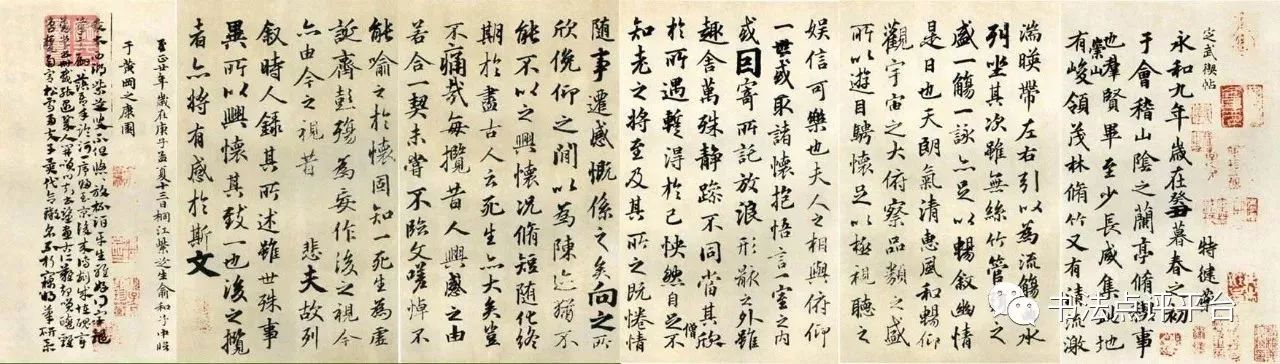 定武禊帖
特健
永和九年歲在癸丑暮春之初
于會稽山陰之蘭亭脩禊事
也羣賢畢至少長咸集此地
有崇山峻領茂林脩竹又有清流激
湍暎帶左右引以為流觴曲水
列坐其次雖無絲竹管弦之
盛一觴一詠亦足以暢叙幽情
是日也天朗氣清惠風和暢仰
觀宇宙之大俯察品類之盛
所以遊目騁懷足以極視聽之
娛信可樂也夫人之相與俯仰
一世或取諸懷抱悟言一室之內
或因寄所託放浪形骸之外雖
趣舍萬殊靜躁不同當其欣
於所遇蹔得於己怏然自足不
僧
知老之將至及其所之既惓情
隨事遷感慨係之矣向之所
欣俛仰之閒以為陳迹猶不
能不以之興懷況脩短隨化終
期於盡古人云死生亦大矣豈
不痛哉每攬昔人興感之由
若合一契未嘗不臨文嗟悼不
能喻之於懷固知一死生為虛
誕齊彭殤為妄作後之視今
亦由今之視昔 悲夫故列
叙時人錄其所述雖世殊事
異所以興懷其致一也後之攬
者亦將有感於斯文
至正廿年歲在庚子孟夏十三日桐江紫芝生俞和子中臨
于黃岡之康園
书法点评平台